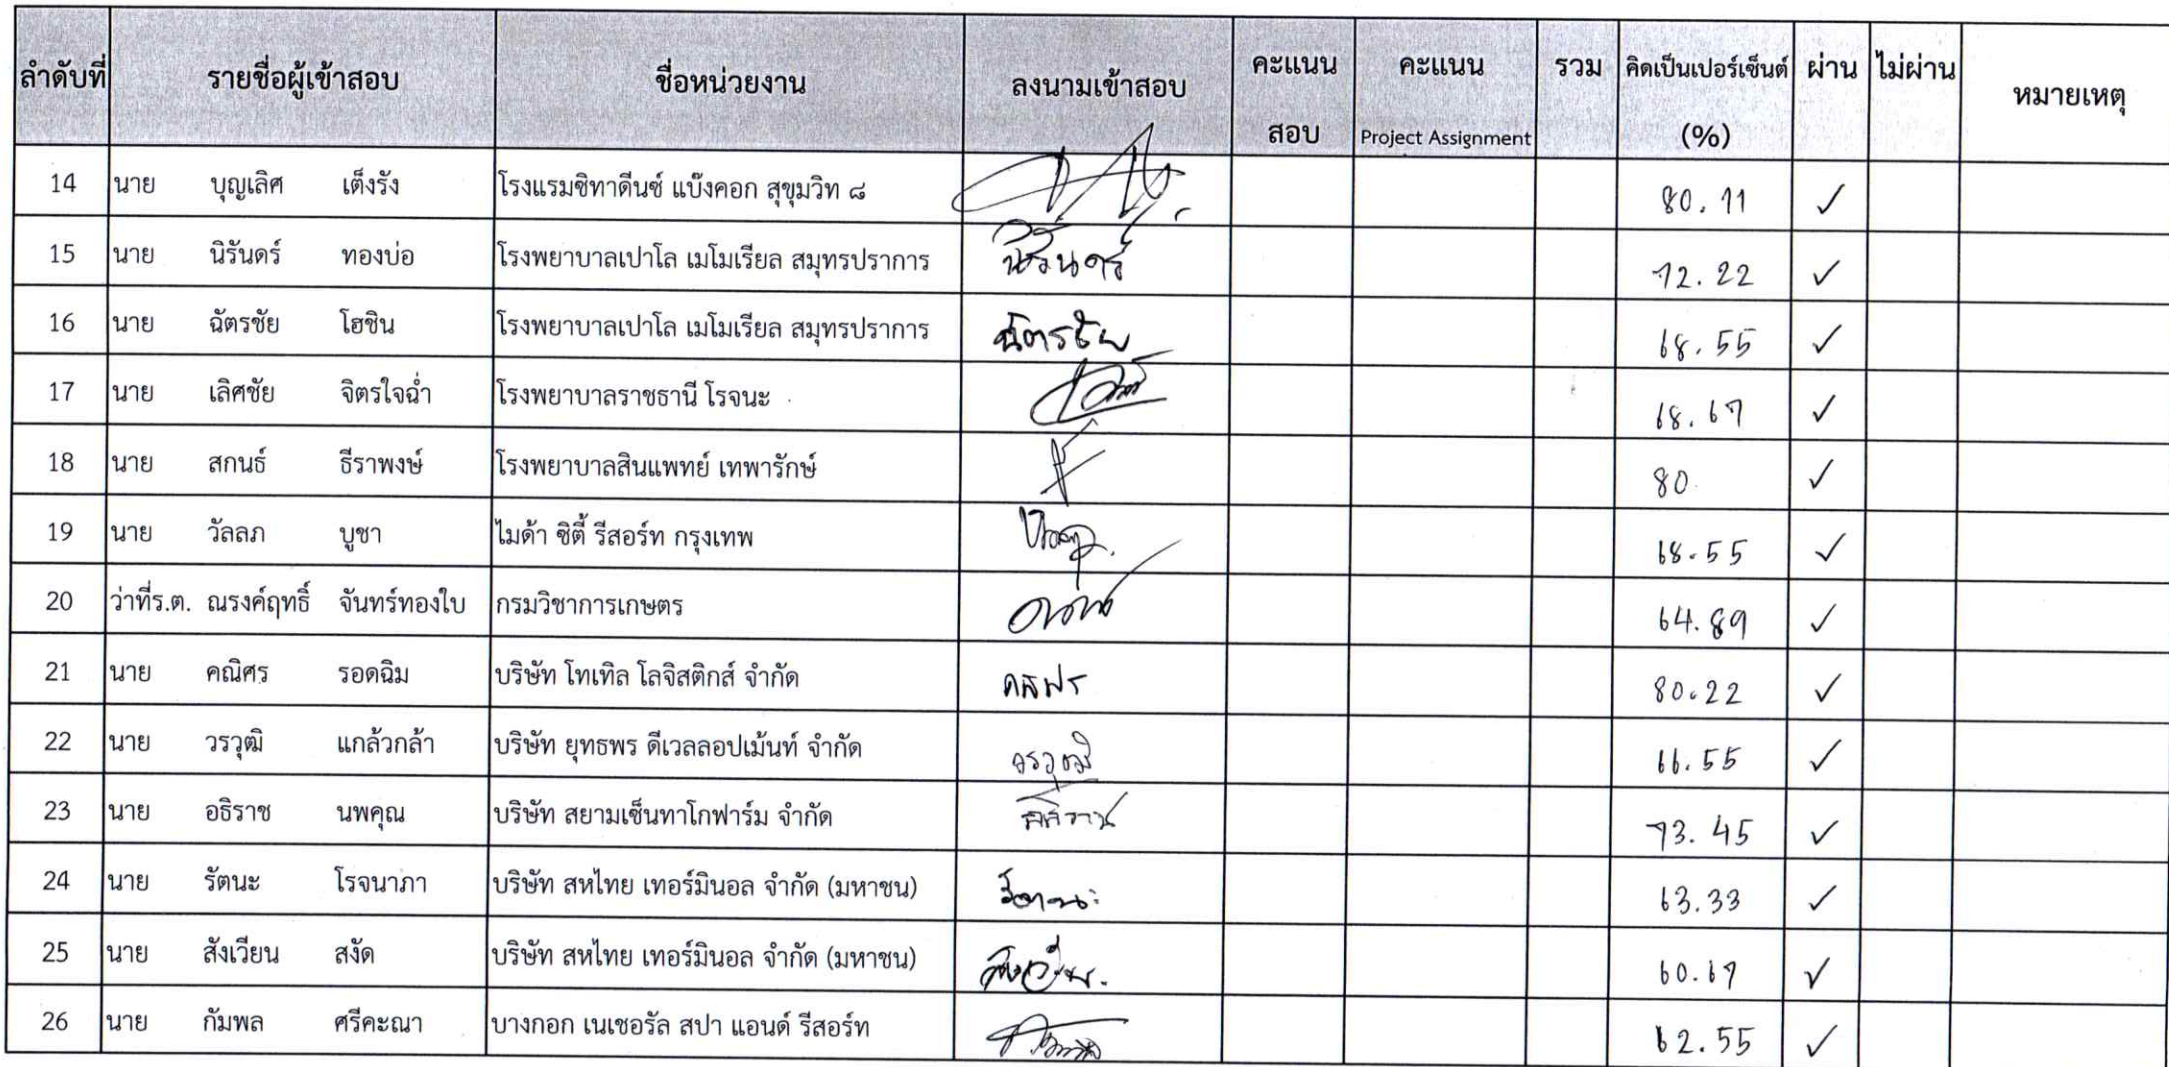 ลำดับที่ รายชื่อผู้เข้าสอบ ชื่อหน่วยงาน ลงนามเข้าสอบ คะแนนสอบ คะแนน Project Assignment รวม คิดเป็นเปอร์เซ็นต์ (%) ผ่าน ไม่ผ่าน หมายเหตุ
14 นาย บุญเลิศ เต็งรัง โรงแรมซิทาดีนซ์ แบ๊งคอก สุขุมวิท ๘ 80.11 ✓
15 นาย นิรันดร์ ทองบ่อ โรงพยาบาลเปาโล เมโมเรียล สมุทรปราการ นิรันดร์ 72.22 ✓
16 นาย ฉัตรชัย โฮชิน โรงพยาบาลเปาโล เมโมเรียล สมุทรปราการ ฉัตรชัย 68.55 ✓
17 นาย เลิศชัย จิตรใจฉ่ำ โรงพยาบาลราชธานี โรจนะ 68.67 ✓
18 นาย สกนธ์ ธีราพงษ์ โรงพยาบาลสินแพทย์ เทพารักษ์ 80 ✓
19 นาย วัลลภ บูชา ไมด้า ซิตี้ รีสอร์ท กรุงเทพ 68.55 ✓
20 ว่าที่ร.ต. ณรงค์ฤทธิ์ จันทร์ทองใบ กรมวิชาการเกษตร 64.89 ✓
21 นาย คณิศร รอดฉิม บริษัท โทเทิล โลจิสติกส์ จำกัด คณิศร 80.22 ✓
22 นาย วรวุฒิ แกล้วกล้า บริษัท ยุทธพร ดีเวลลอปเม้นท์ จำกัด วรวุฒิ 66.55 ✓
23 นาย อธิราช นพคุณ บริษัท สยามเซ็นทาโกฟาร์ม จำกัด อธิราช 73.45 ✓
24 นาย รัตนะ โรจนาภา บริษัท สหไทย เทอร์มินอล จำกัด (มหาชน) รัตนะ 63.33 ✓
25 นาย สังเวียน สงัด บริษัท สหไทย เทอร์มินอล จำกัด (มหาชน) สังเวียน 60.67 ✓
26 นาย กัมพล ศรีคะณา บางกอก เนเชอรัล สปา แอนด์ รีสอร์ท 62.55 ✓